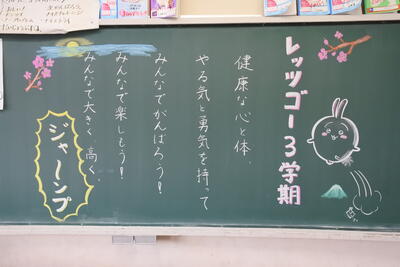 レッツゴー3学期
健康な心と体、
やる気と勇気を持って
みんなでがんばろう!
みんなで楽しもう!
みんなで大きく、高く、
ジャーンプ